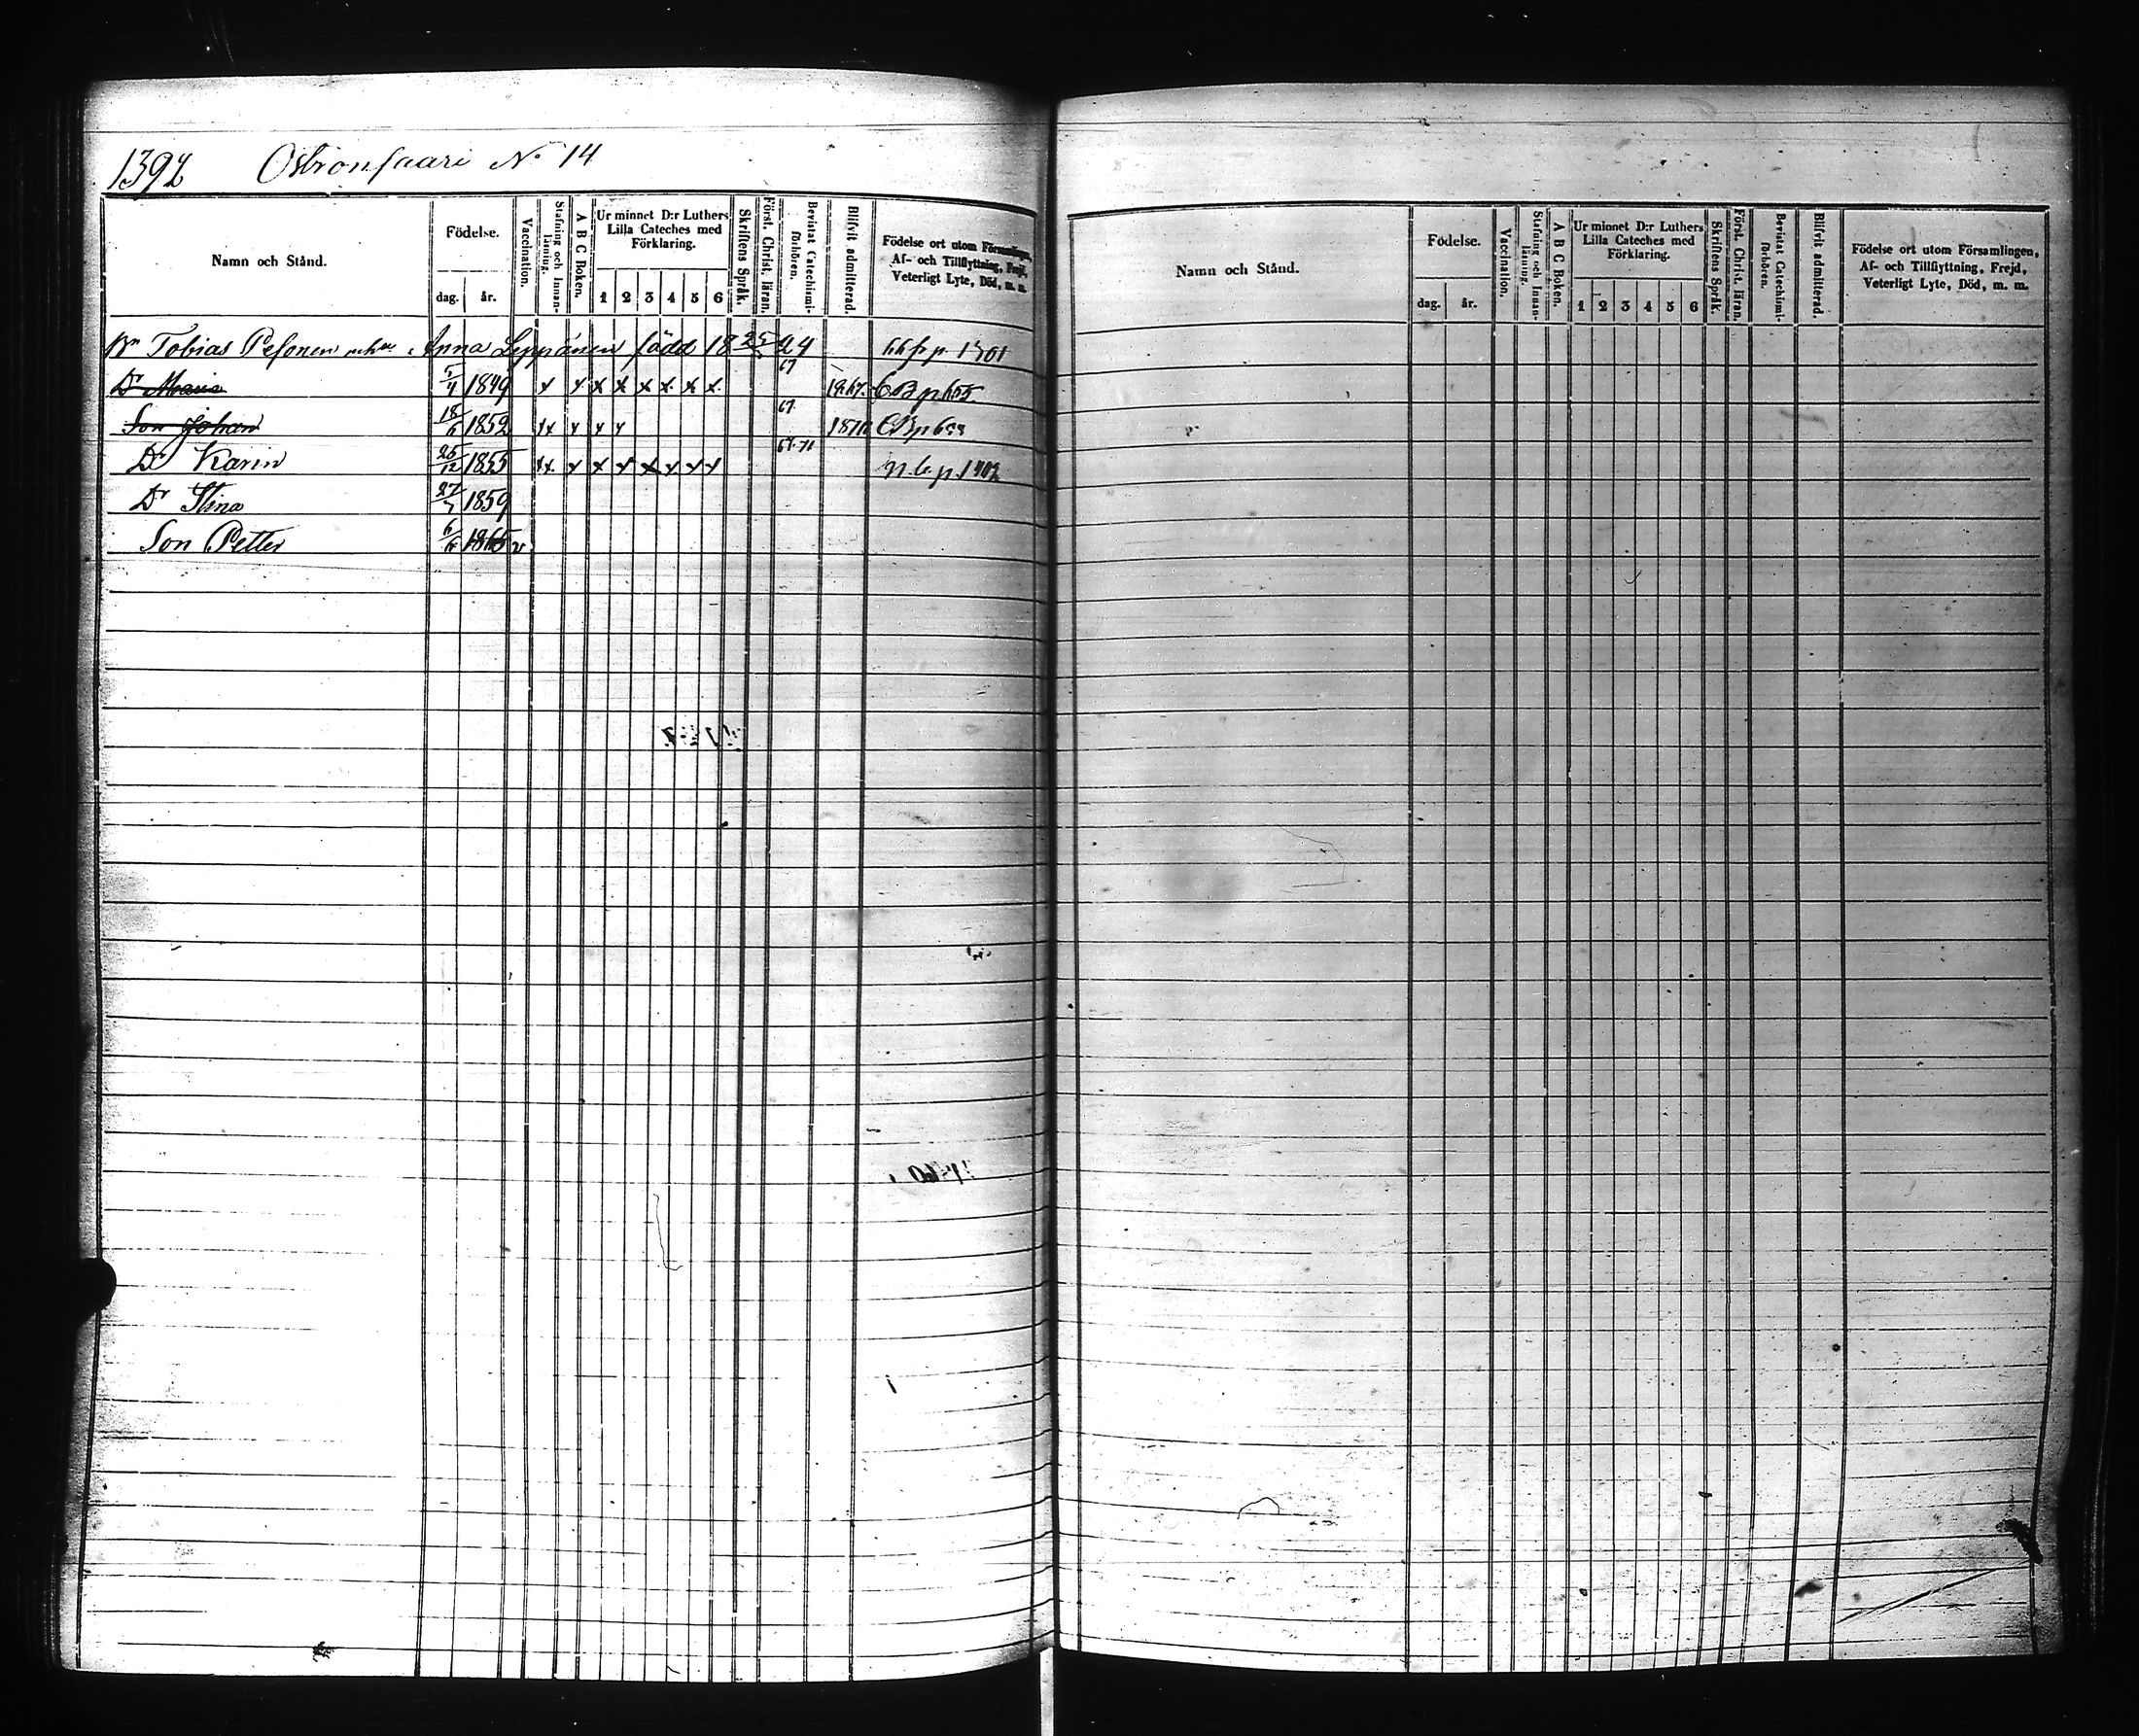 1392 Ostronsaari No 14
Namn och Stånd.
Födelse.
dag. år.
Vaccination.
Stafning och Innanläsning.
A B C Boken.
Ur minnet D:r Luthers Lilla Cateches med Förklaring.
1 2 3 4 5 6
Skriftens Språk.
Först. Christ. läran.
Bevistat Catechismiförhören.
Blifvit admitterad.
Födelse ort utom Församlingen, Af- och Tillflyttning, Frejd, Veterligt Lyte, Död, m. m.
Tobias Pesonen Anna Leppänen född 18 p. 1301
Dr Maria 5/4 1849 x x x x x x x x 67 1867 CB p 655
Son Johan 18/6 1852 xx x x x 67 1870 CB p
Dr Karin 25/12 1855 xx x x x x x x x 67-71 p. 1402
Dr Stina 27/7 1859
Son Petter 6/6 1865 v
Namn och Stånd.
Födelse.
dag. år.
Vaccination.
Stafning och Innanläsning.
A B C Boken.
Ur minnet D:r Luthers Lilla Cateches med Förklaring.
1 2 3 4 5 6
Skriftens Språk.
Först. Christ. läran.
Bevistat Catechismiförhören.
Blifvit admitterad.
Födelse ort utom Församlingen, Af- och Tillflyttning, Frejd, Veterligt Lyte, Död, m. m.